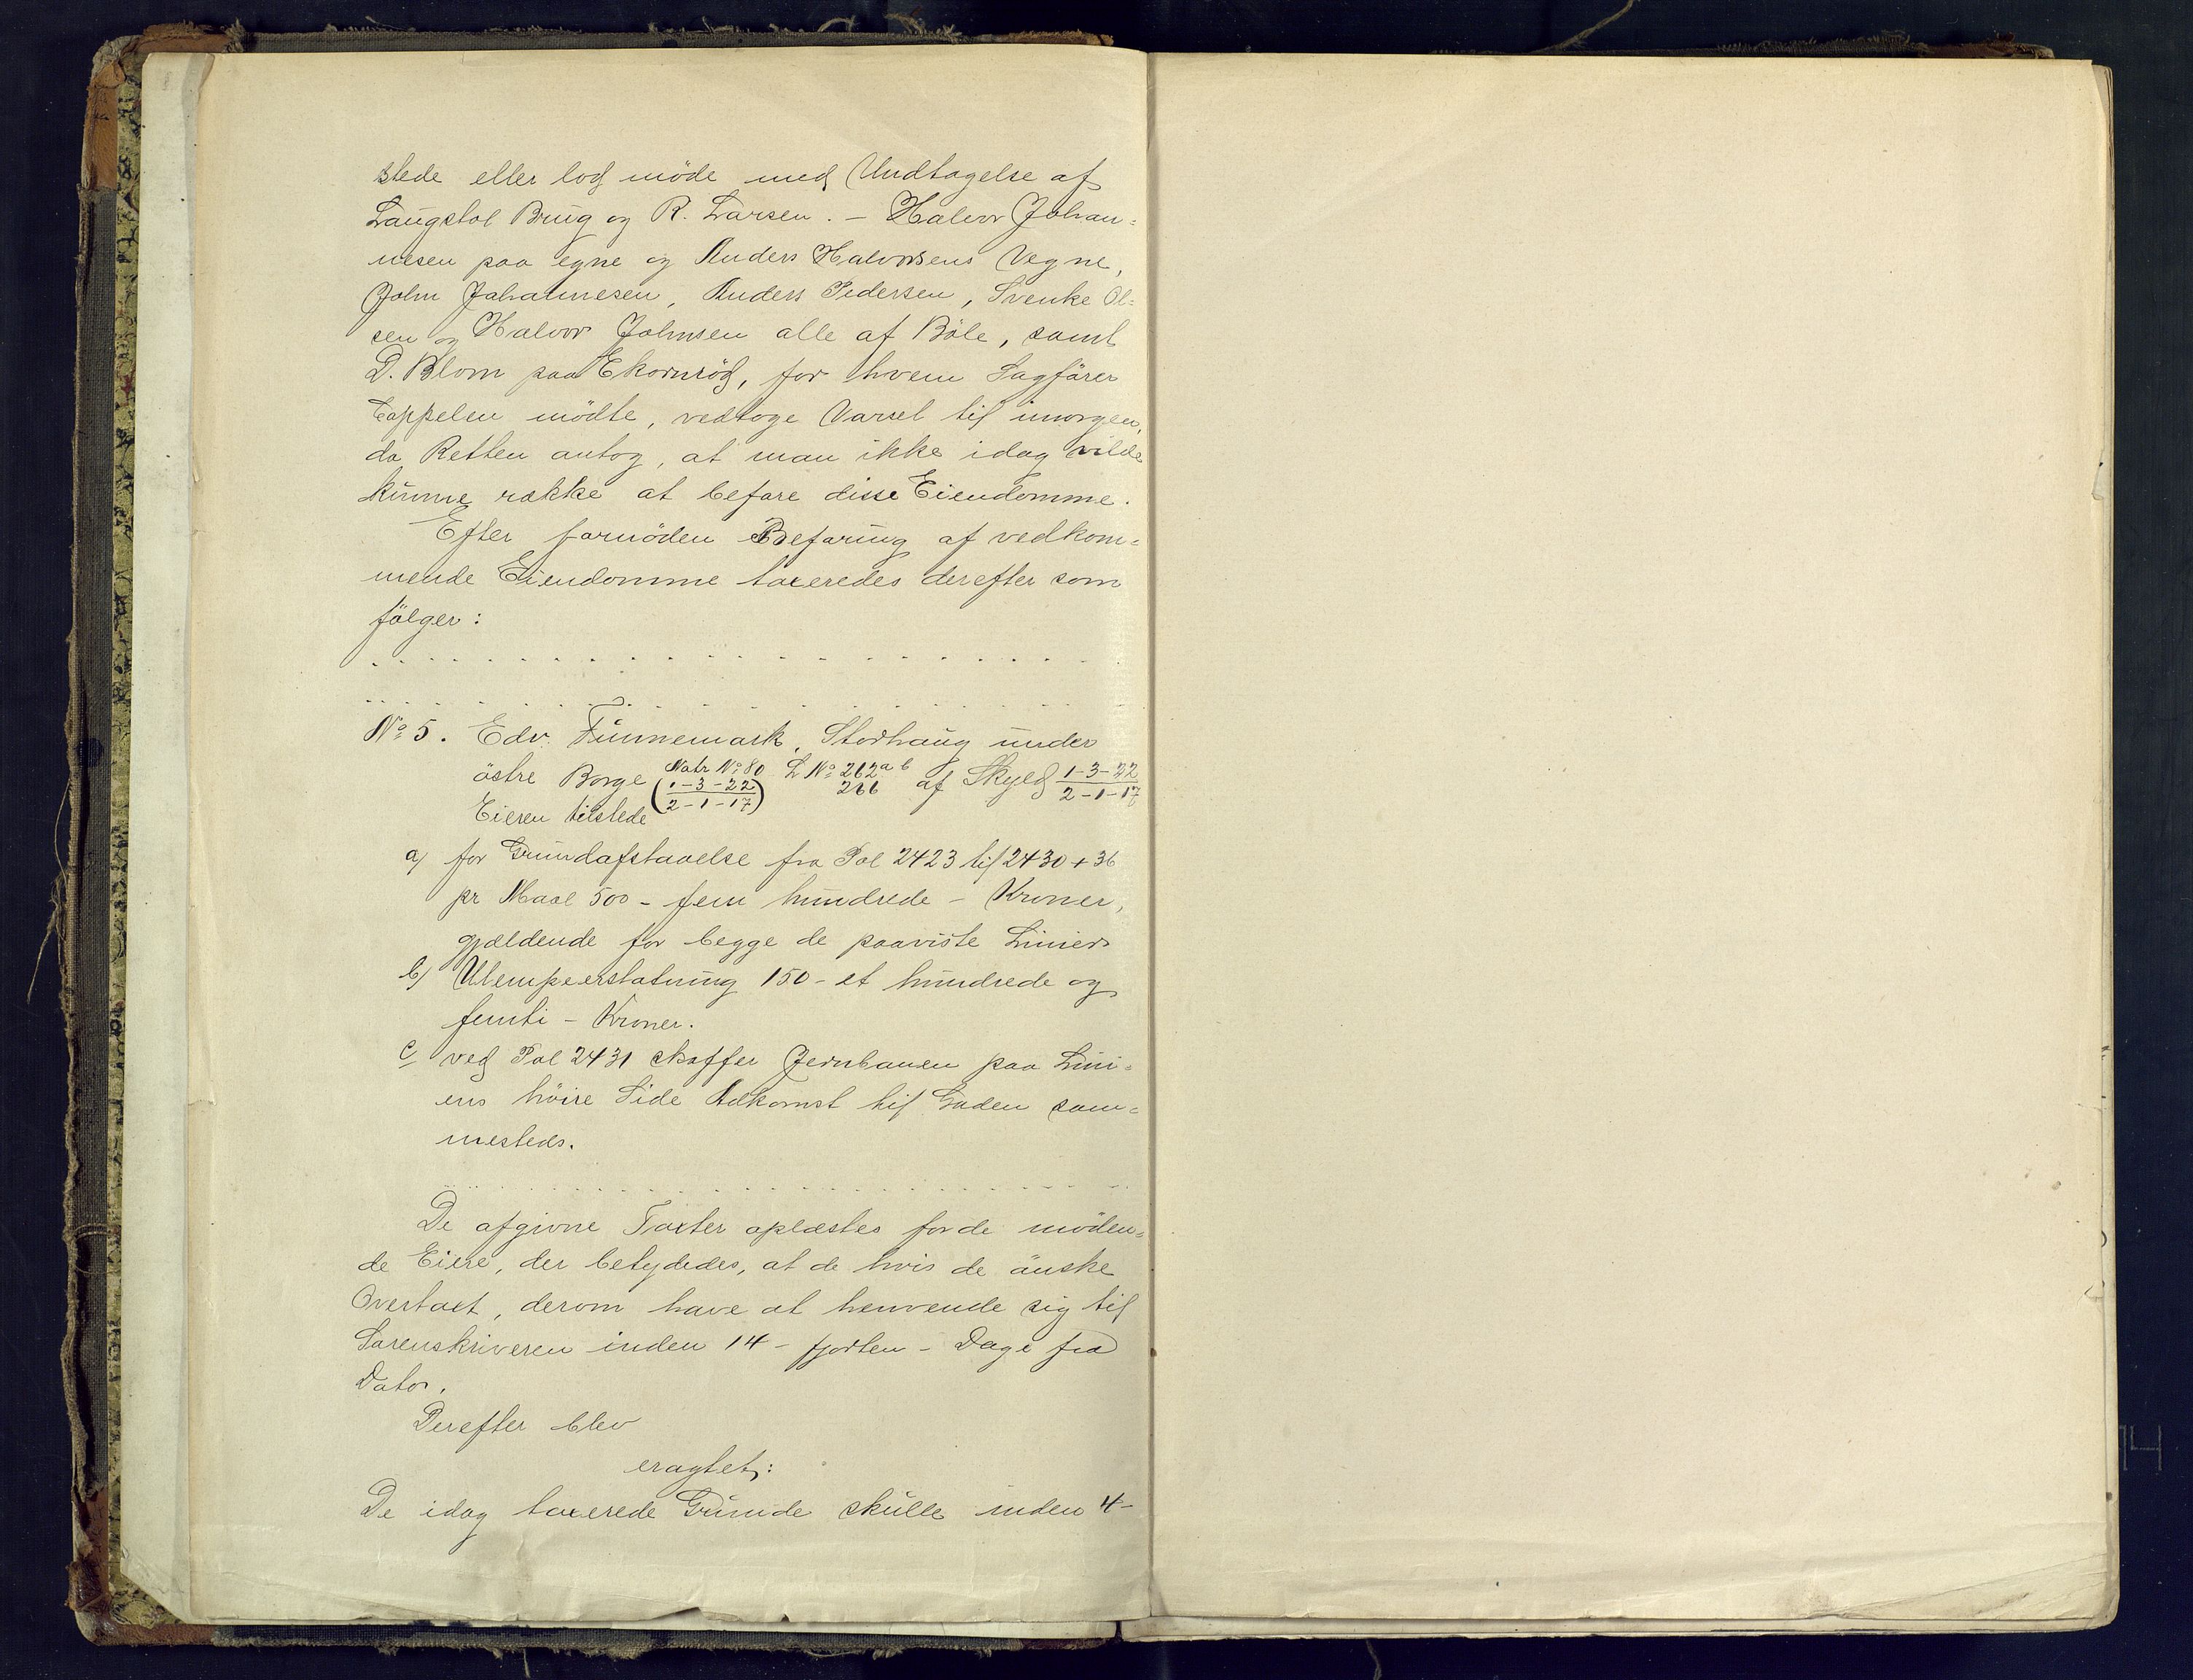 stede eller lod möde med Undtagelse af
Langstol Brug og R. Larsen. – Halvor Johan=
nesen paa egne og Anders Halvorsens Vegne,
John Johannesen, Anders Pedersen, Svenke Ol=
sen og Halvor Johnsen alle af Böle, samt
D. Blom paa Ekornröd, for hvem Sagförer
Cappelen mödte, vedtoge Varsel til imorgen,
da Retten antog, at man ikke idag vilde
kunne række at befare disse Eiendomme.
Efter fornöden Befaring af vedkom=
mende Eiendomme taxeredes derefter som
fölger:
No 5. Edv. Funnemark, Storhaug under
östre Borge Matr No 80 (1-3-22 / 2-1-17) L No 262 a b 266 af Skyld 1-3-22 / 2-1-17
Eieren tilstede
a) for Grundafstaaelse fra Pal 2423 til 2430 + 36
pr Maal 500 – fem hundrede – Kroner,
gjældende for begge de paaviste Linier
b) Ulempeerstatning 150 – et hundrede og
femti – Kroner.
c) ved Pal 2431 skaffer Jernbanen paa Lini=
ens höire Side Adkomst til Gaden sam=
mesteds.
De afgivne Taxter oplæstes for de möden=
de Eiere, der betydedes, at de hvis de önske
Overtaxt, derom have at henvende sig til
Sorenskriveren inden 14 – fjorten – Dage fra
Dato.
Derefter blev
eragtet:
De idag taxerede Grunde skulle inden 4 –